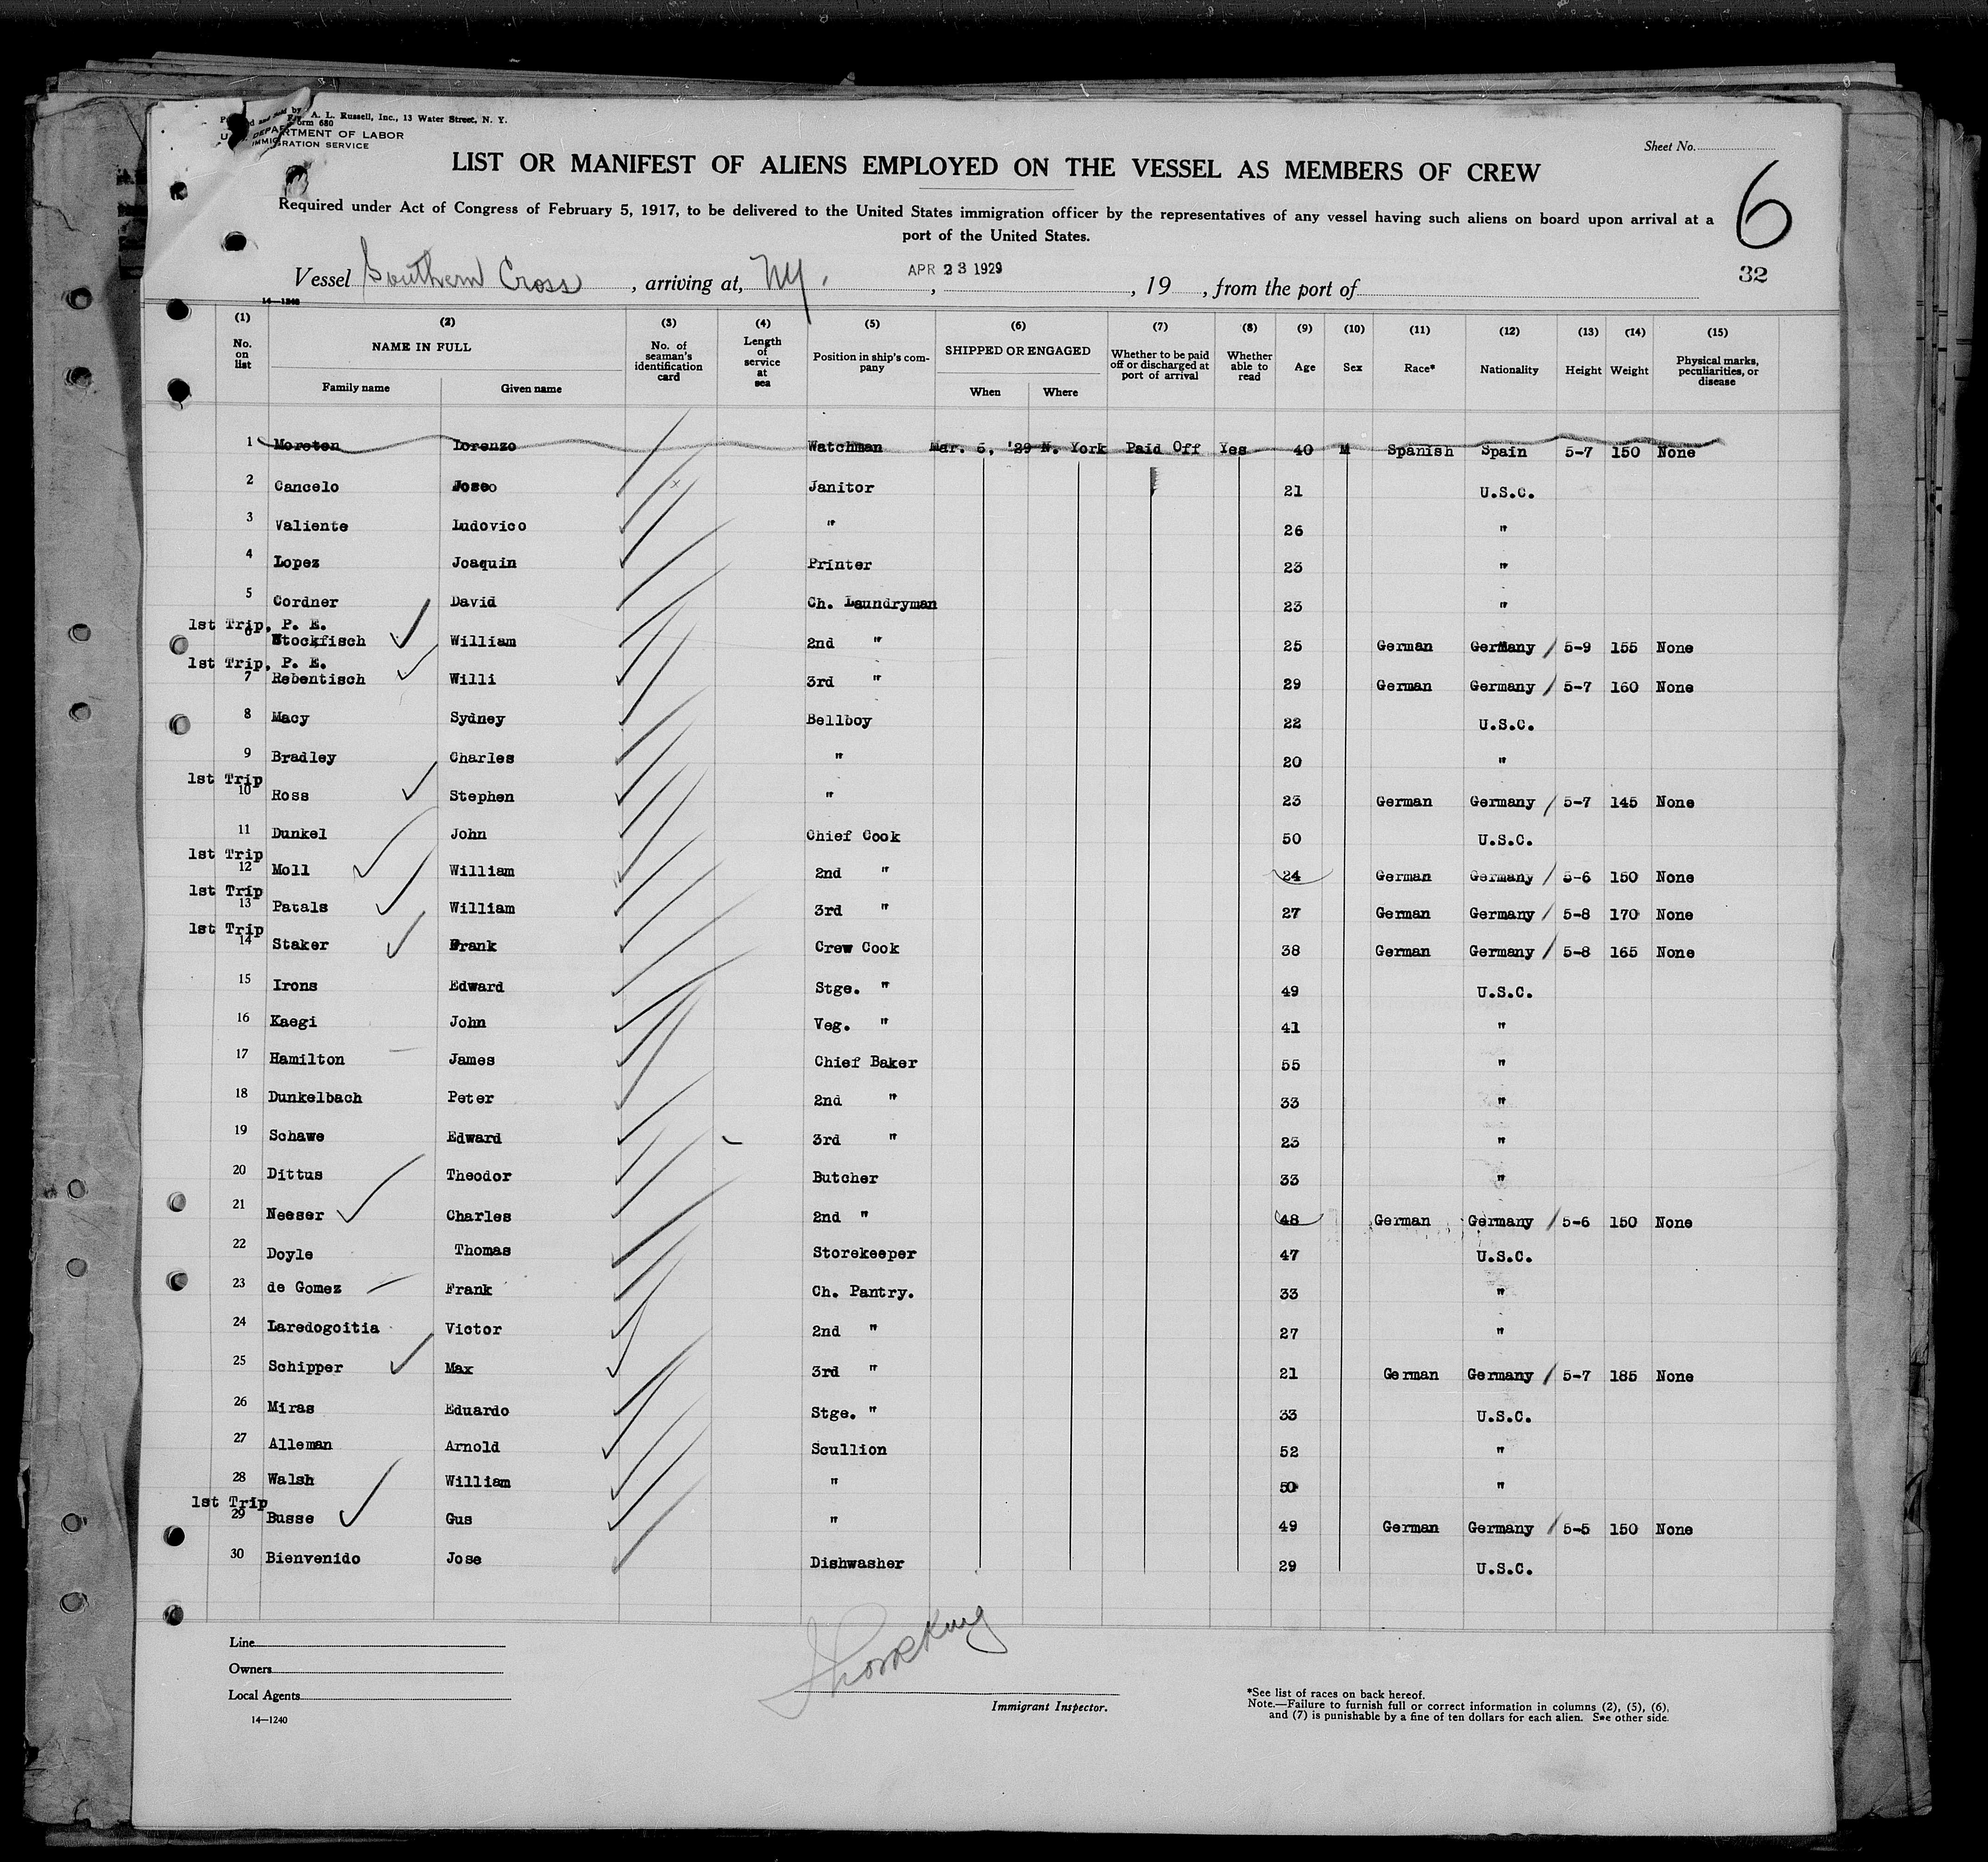 by A. L. Russell, Inc., 13 Water Street, N. Y.
Form 680
DEPARTMENT OF LABOR
IMMIGRATION SERVICE
Sheet No.
LIST OR MANIFEST OF ALIENS EMPLOYED ON THE VESSEL AS MEMBERS OF CREW
6
Required under Act of Congress of February 5, 1917, to be delivered to the United States immigration officer by the representatives of any vessel having such aliens on board upon arrival at a
port of the United States.
Vessel Southern Cross, arriving at, NY. APR 23 1929, 19, from the port of
32
14—1240
(1) (2) (3) (4) (5) (6) (7) (8) (9) (10) (11) (12) (13) (14) (15)
No. on list NAME IN FULL No. of seaman's identification card Length of service at sea Position in ship's company SHIPPED OR ENGAGED Whether to be paid off or discharged at port of arrival Whether able to read Age Sex Race* Nationality Height Weight Physical marks, peculiarities, or disease
Family name Given name When Where
1 Moreton Lorenzo Watchman Mar. 5, '29 N. York Paid Off Yes 40 M Spanish Spain 5-7 150 None
2 Cancelo Janitor 21 U.S.C.
3 Valiente Ludovico " 26 "
4 Lopez Joaquin Printer 23 "
5 Cordner David Ch. Laundryman 23 "
1st Trip, P. E.
6 Stockfisch William 2nd " 25 German Germany 5-9 155 None
1st Trip, P. E.
7 Rebentisch Willi 3rd " 29 German Germany 5-7 160 None
8 Macy Sydney Bellboy 22 U.S.C.
9 Bradley Charles " 20 "
1st Trip
10 Ross Stephen " 23 German Germany 5-7 145 None
11 Dunkel John Chief Cook 50 U.S.C.
1st Trip
12 Moll William 2nd " 24 German Germany 5-6 150 None
1st Trip
13 Patals William 3rd " 27 German Germany 5-8 170 None
1st Trip
14 Staker Frank Crew Cook 38 German Germany 5-8 165 None
15 Irons Edward Stge. " 49 U.S.C.
16 Kaegi John Veg. " 41 "
17 Hamilton James Chief Baker 55 "
18 Dunkelbach Peter 2nd " 33 "
19 Schawe Edward 3rd " 23 "
20 Dittus Theodor Butcher 33 "
21 Neeser Charles 2nd " 48 German Germany 5-6 150 None
22 Doyle Thomas Storekeeper 47 U.S.C.
23 de Gomez Frank Ch. Pantry. 33 "
24 Laredogoitia Victor 2nd " 27 "
25 Schipper Max 3rd " 21 German Germany 5-7 185 None
26 Miras Eduardo Stge. " 33 U.S.C.
27 Alleman Arnold Scullion 52 "
28 Walsh William " 50 "
1st Trip
29 Busse Gus " 49 German Germany 5-5 150 None
30 Bienvenido Jose Dishwasher 29 U.S.C.
Line
Owners
Local Agents
14—1240
Immigrant Inspector.
*See list of races on back hereof.
Note.—Failure to furnish full or correct information in columns (2), (5), (6),
and (7) is punishable by a fine of ten dollars for each alien. See other side.